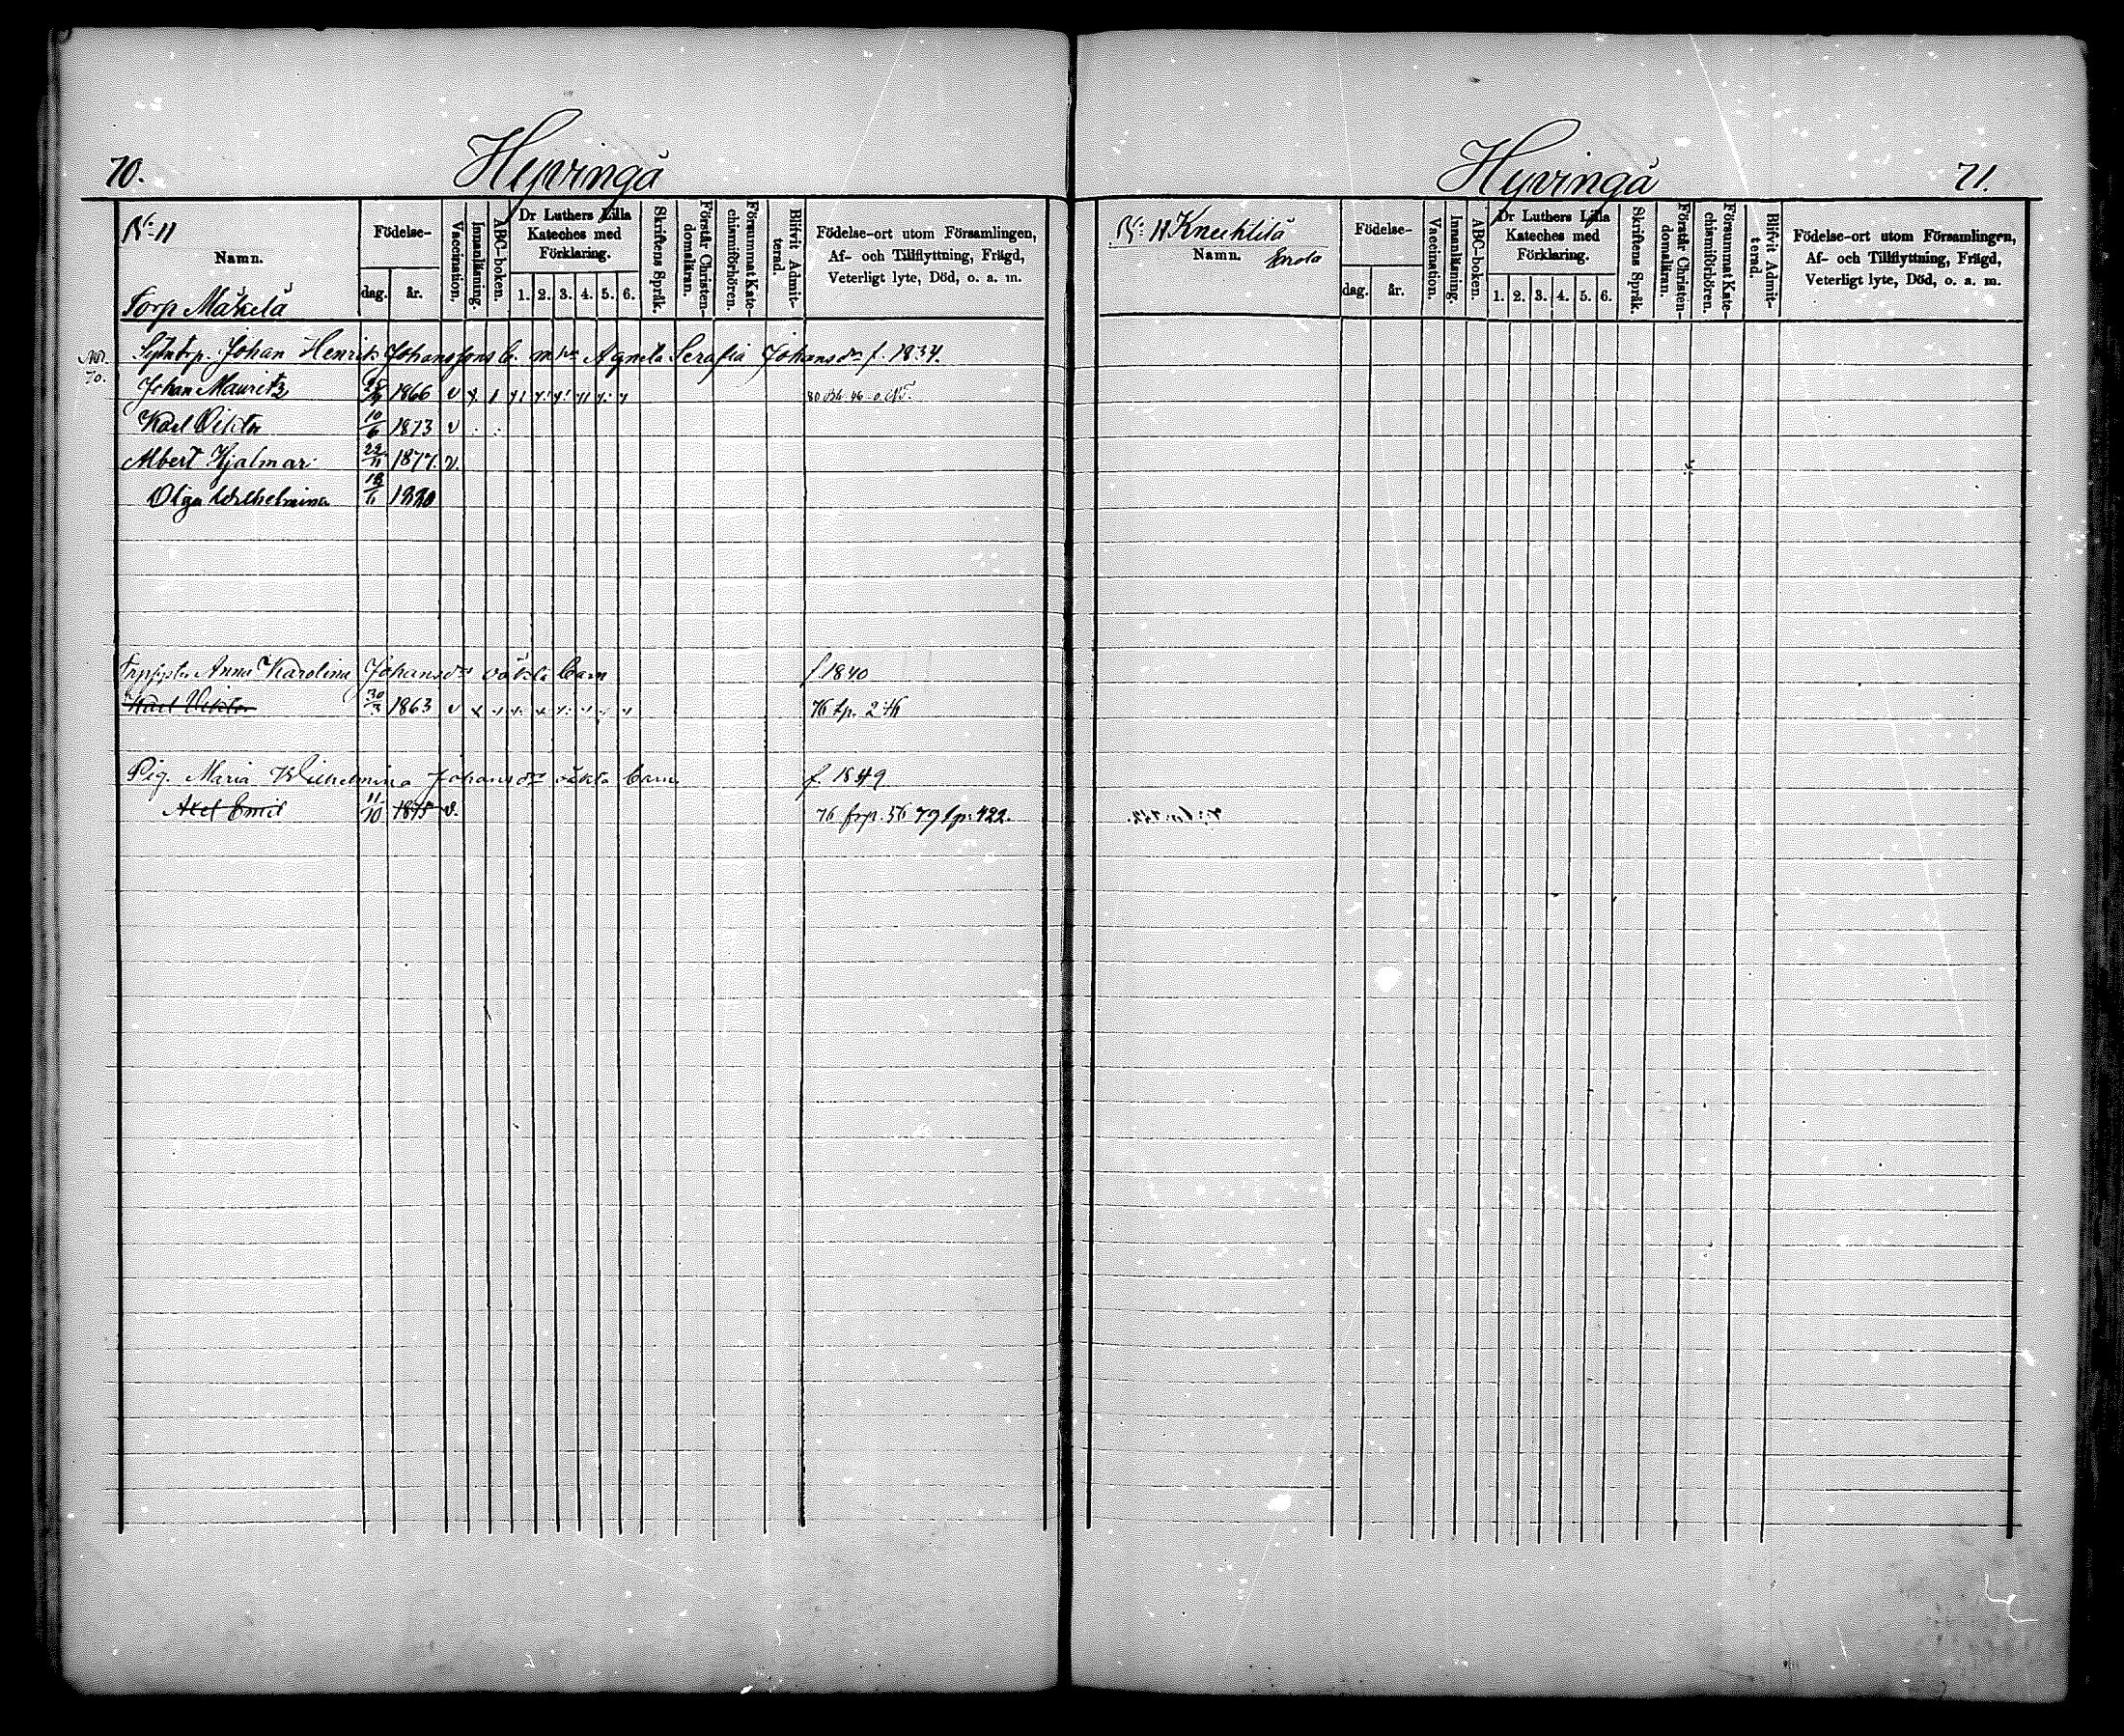 70.
Hyvingä
No 11
Namn.
Torp Mäkelä
Födelse-
dag.
år.
Vaccination.
Innanläsning.
ABC-boken.
Dr Luthers Lilla
Kateches med
Förklaring.
1. 2. 3. 4. 5. 6.
Skriftens Språk.
Förstår Christen-
domsläran.
Försummat Kate-
chismiförhören.
Blifvit Admit-
terad.
Födelse-ort utom Församlingen,
Af- och Tillflyttning, Frägd,
Veterligt lyte, Död, o. a. m.
Johan Henrik Johanssons b. m. h. Agneta Serafia Johansdr f. 1834.
70.
Johan Mauritz 1866 v
Karl Viktor 10/6 1873 v
Albert Hjalmar 22/11 1877. v.
Olga Wilhelmina 18/11 1880
Anna Karolina Johansdrs oäkta barn f. 1840
Karl Viktor 30/3 1863 v 76 tp. 2:
Pig. Maria Wilhelmina Johansdrs oäkta barn f. 1849
Axel Emil 11/10 1875 v. 76 frp. 56 79 tp. 422.
Hyvingä
71.
No 11 Knehtilä
Namn.
Födelse-
dag.
år.
Vaccination.
Innanläsning.
ABC-boken.
Dr Luthers Lilla
Kateches med
Förklaring.
1. 2. 3. 4. 5. 6.
Skriftens Språk.
Förstår Christen-
domsläran.
Försummat Kate-
chismiförhören.
Blifvit Admit-
terad.
Födelse-ort utom Församlingen,
Af- och Tillflyttning, Frägd,
Veterligt lyte, Död, o. a. m.